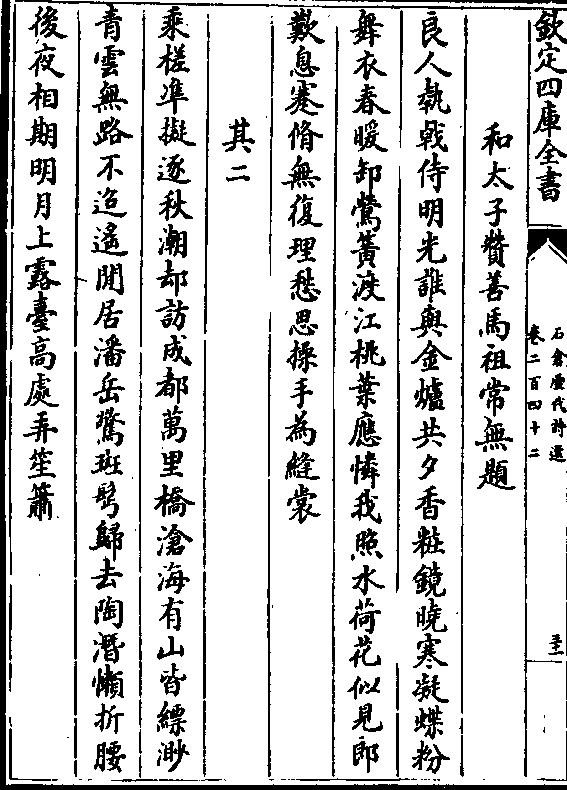 欽定四庫全書
石倉歷代詩選
卷二百四十二
和太子贊善馬祖常無題
良人執戟侍明光誰與金爐共夕香粧鏡曉寒凝蝶粉
舞衣春暖卸鶯簧渡江桃葉應憐我照水荷花似見郎
歎息蹇脩無復理愁思摻手為縫裳
其二
乘槎凖擬逐秋潮却訪成都萬里橋滄海有山皆縹渺
青雲無路不迢遙閒居潘岳驚斑鬢歸去陶潛懶折腰
後夜相期明月上露臺高處弄笙簫